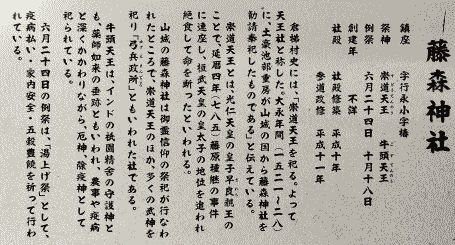 藤森神社
鎮座 字行永小字椿
祭神 崇道天王 牛頭天王
例祭 六月二十四日 十月十八日
創建年 不詳
社殿 社殿修築 平成十一年
参道改修 平成十一年
倉梯村史には、「崇道天王を祀る。よって
天王社と称した。大永年間(一五二一~二八)
に、土豪池部重房が山城の国から藤森神社を
勧請奉祀したものである」と伝えている。
崇道天王とは、光仁天皇の皇子早良親王の
ことで、延暦四年(七八五)藤原種継の事件
に連座し、桓武天皇の皇太子の地位を追われ
絶食して命を断ったといわれる。
山城の藤森神社は御霊信仰の祭祀が行なわ
れたところで、崇道天王のほか、多くの武神を
祀り、「弓兵政所」ともいわれた社である。
牛頭天王は、インドの祇園精舎の守護神と
も、薬師如来の垂跡ともいわれ、農事や疫病
と深くかかわりながら、厄神、除疫神として
祀られている。
六月二十四日の例祭は、「湯上げ祭」として、
疫病払い・家内安全・五穀豊饒を祈って行わ
れている。